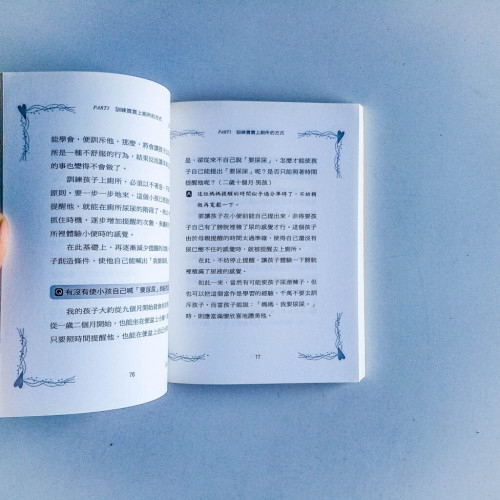 PART3 訓練寶寶上廁所的方式
能學會，便訓斥他，那麼，將會讓孩
所是一種不舒服的行為，結果反而讓
的事也變得不會做了。
訓練孩子上廁所，必須以不著急、不
原則，要一步一步地來，這個小孩已
提醒他，就能在廁所尿尿的階段了，所以
抓住時機，逐步增加提醒的次數，
所裡體驗小便時的感覺。
在此基礎上，再逐漸減少提醒的
子創造條件，使他自己能喊出「我要尿
Q 有沒有使小孩自己喊「要尿尿」
我的孩子大約從九個月開始就會
從一歲二個月開始，也能坐在便盆上小
只要照時間提醒他，也能在便盆上
76
PART3 訓練寶寶上廁所的方式
是，卻從來不自己說「要尿尿」，怎麼才能使孩
子自己能提出「要尿尿」呢？是否只能照著時間
提醒他呢？（二歲十個月男孩）
A 這位媽媽提醒的時間似乎過分準確了，不妨稍
微再寬鬆一下。
要讓孩子在小便前就自己提出來，非得要孩
子自己有了膀胱裡積了尿的感覺才行。這個孩子
由於母親提醒的時間太過準確，使得自己還沒有
尿已憋不住的感覺時，就被提醒去上廁所。
在此，不妨停止提醒，讓孩子體驗一下膀胱
裡積滿了尿液的感覺。
如此一來，當然有可能使孩子尿濕褲子，但
也可以把這個當作是學習的經驗，千萬不要去訓
斥孩子。而當孩子能說：「媽媽，我要尿尿。」
時，則應當滿懷欣喜地讚美他。
77